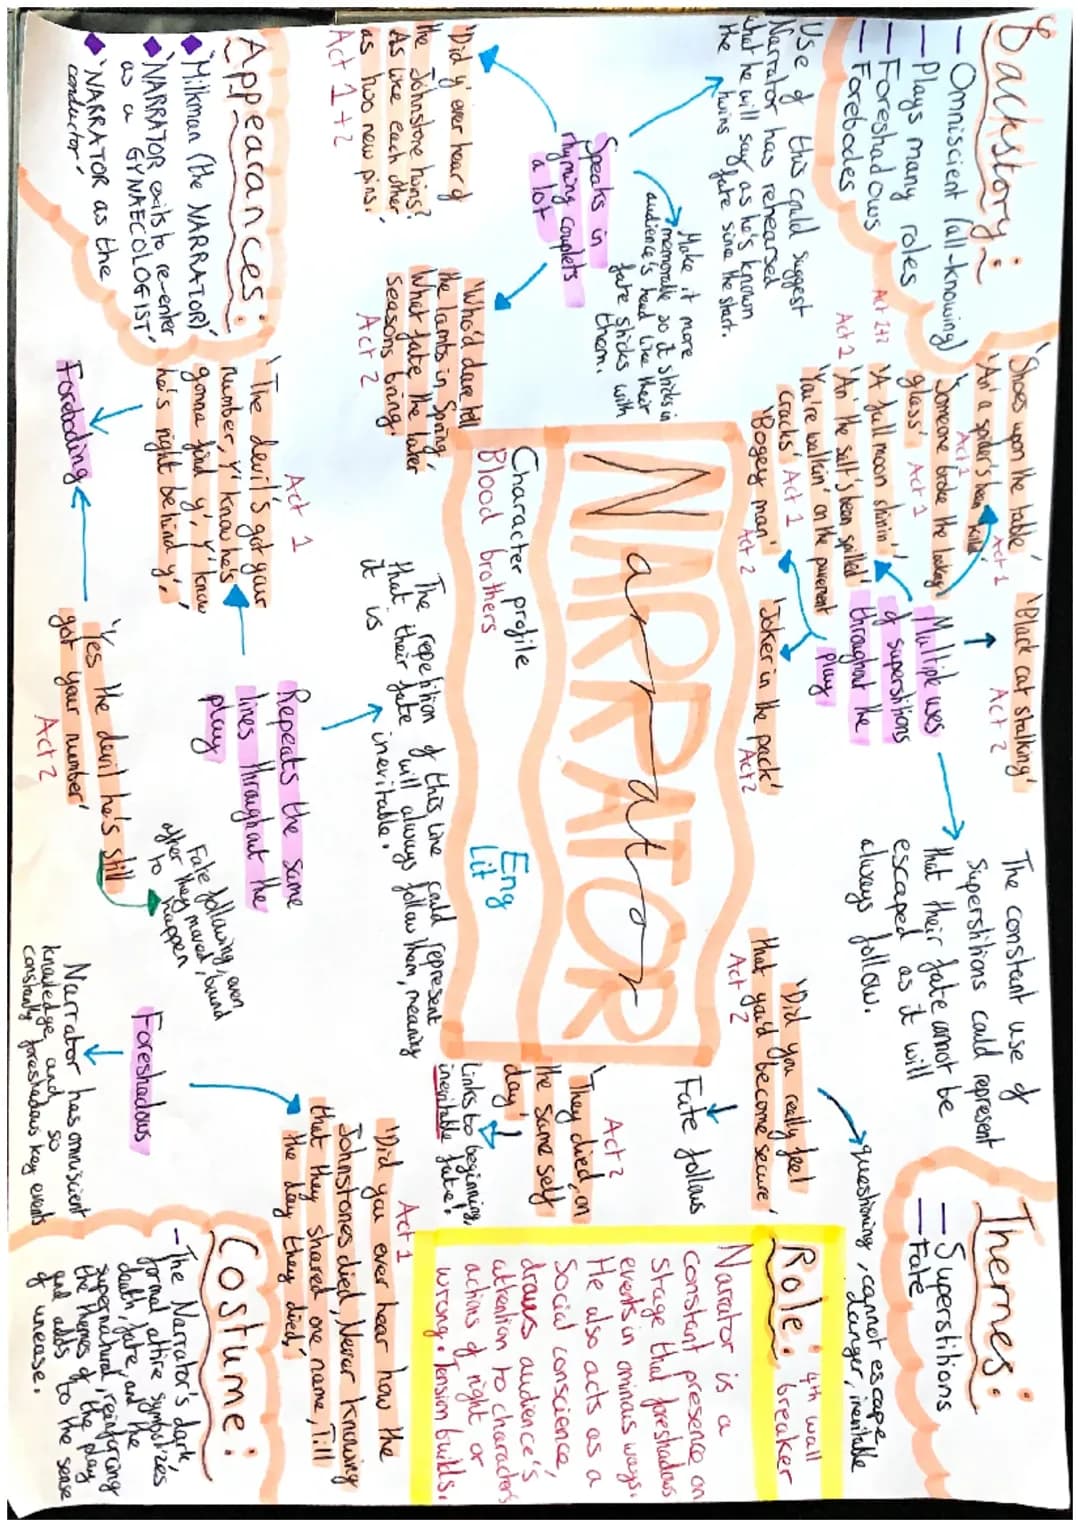 Backstory:
— Omniscient (all-knowing)
— Plays many roles
— Foreshadows
— Forebodes
'Shoes upon the table'
Act 1
'An' a spider's been killed'
Act 1
'Someone broke the lookin'
glass' Act 1
'A full moon shinin''
Act 1+2
'An' the salt's been spilled'
Act 2
'You're walkin' on the pavement
cracks' Act 1
'Bogey man'
Act 2
'Joker in the pack'
Act 2
'Black cat stalking'
Act 2
Multiple uses
of superstitions
throughout the
play
The constant use of
Superstitions could represent
that their fate cannot be
escaped as it will
always follow.
Themes:
— Superstitions
— Fate
Use of this could suggest
Narrator has rehearsed
what he will say as he's known
the twins' fate since the start.
Speaks in
rhyming couplets
a lot
Make it more
memorable so it sticks in
audience's head like their
fate sticks with
them.
'Did y' ever hear of
the Johnstone twins?
As like each other
as two new pins.'
Act 1+2
'Who'd dare tell
the lambs in Spring,
What fate the later
seasons bring.'
Act 2
NARRATOR
Narrator
Character profile
Blood brothers
Eng
Lit
'Did you really feel
that you'd become secure'
Act 2
questioning, cannot escape
danger, inevitable
Fate follows
'They died, on
the same self
day'
Act 2
Links to beginning,
inevitable fate!
Role: 4th wall
breaker
Narrator is a
constant presence on
stage that foreshadows
events in ominous ways.
He also acts as a
social conscience,
draws audience's
attention to characters
actions of right or
wrong. Tension builds.
Appearances:
Milkman (the NARRATOR)'
'NARRATOR exits to re-enter
as a GYNAECOLOGIST'
'NARRATOR as the
conductor'
Act 1
'The devil's got your
number, Y' know he's
gonna find y', Y' know
he's right behind y','
Foreboding
'Yes the devil he's still
got your number'
Act 2
Repeats the same
lines throughout the
play
The repetition of this line could represent
that their fate will always follow them, meaning
it is inevitable.
Fate following, even
after they moved, bound
to happen
Foreshadows
Narrator has omniscient
knowledge and so
constantly foreshadows key events
Act 1
'Did you ever hear how the
Johnstones died, Never knowing
that they shared one name, Till
the day they died,'
Costume:
– The Narrator's dark,
formal attire symbolizes
death, fate, and the
supernatural, reinforcing
the themes of the play
and adds to the sense
of unease.